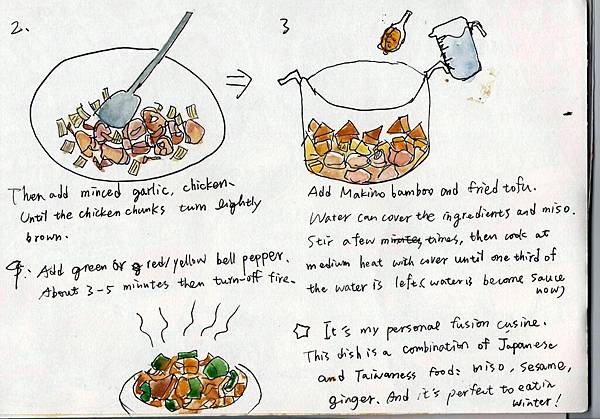 2.
Then add minced garlic, chicken.
Until the chicken chunks turn lightly
brown.
3
Add Makino bamboo and fried tofu.
Water can cover the ingredients and miso.
Stir a few minutes, times, then cook at
medium heat with cover until one third of
the water is left. (water is become sauce
now)
Add green or red/yellow bell pepper.
About 3-5 minutes then turn-off fire.
It's my personal fusion cusine.
This dish is a combination of Japanese
and Taiwaness food: miso, sesame,
ginger. And it's perfect to eat in
winter!